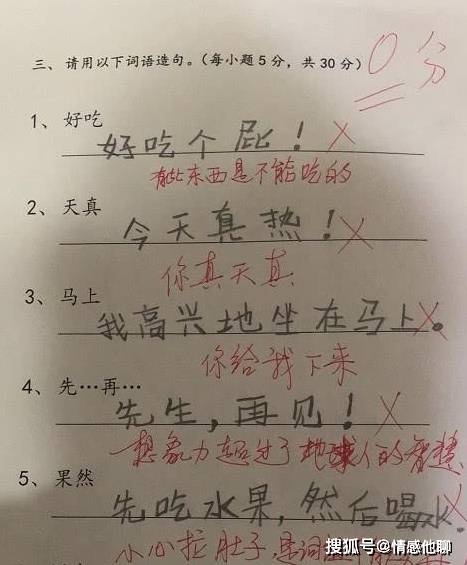 三、请用以下词语造句。（每小题5分，共30分）
0分
1、好吃
好吃个屁！
有些东西是不能吃的
2、天真
今天真热！
你真天真
3、马上
我高兴地坐在马上。
你给我下来
4、先…再…
先生，再见！
想象力超过了地球人的智慧
5、果然
先吃水果，然后喝水.
小心拉肚子,是词
搜狐号@情感他聊